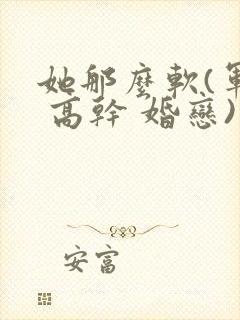 她那麼軟(軍
高幹 婚戀)
安富